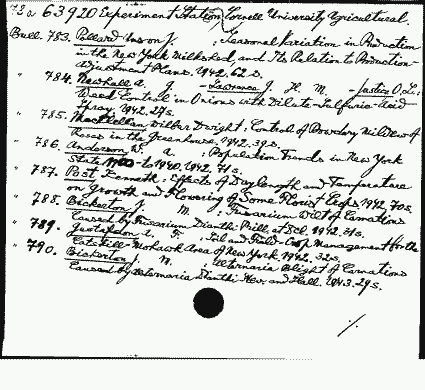 72a 63920 Experiment Station, Cornell University Agricultural.
Bull. 783. Pollard Anson J. : Seasonal Variation in Production
in the New York Milkshed, and Its Relation to Production-
Adjustment Plans. 1942. 62 s.
" 784. Newhall A. G. - Lawrence J. H. M. - Justice O. L.:
Weed Control in Onions with Dilute-Sulfuric-Acid
Spray. 1942. 27 s.
" 785. MacClellan Wilbur Dwight: Control of Powdery Mildew of
Roses in the Greenhouse. 1942. 39 s.
" 786. Anderson W. A. : Population Trends in New York
State 1900-to 1940. 1942. 71 s.
" 787. Post Kenneth: Effects of Daylength and Temperature
on Growth and Flowering of Some Florist Crops. 1942. 70 s.
" 788. Bickerton J. M. : Fusarium Wilt of Carnations
Caused by Fusarium Dianthi Prill. et Del. 1942.
" 789. Gustafson A. F. : Soil and Field-Crop Management for the
Catskill-Mohawk Area of New York. 1942. 32 s.
" 790. Bickerton J. M. : Alternaria Blight of Carnations
Caused by Alternaria Dianthi Stev. and Hall. 1943. 29 s.